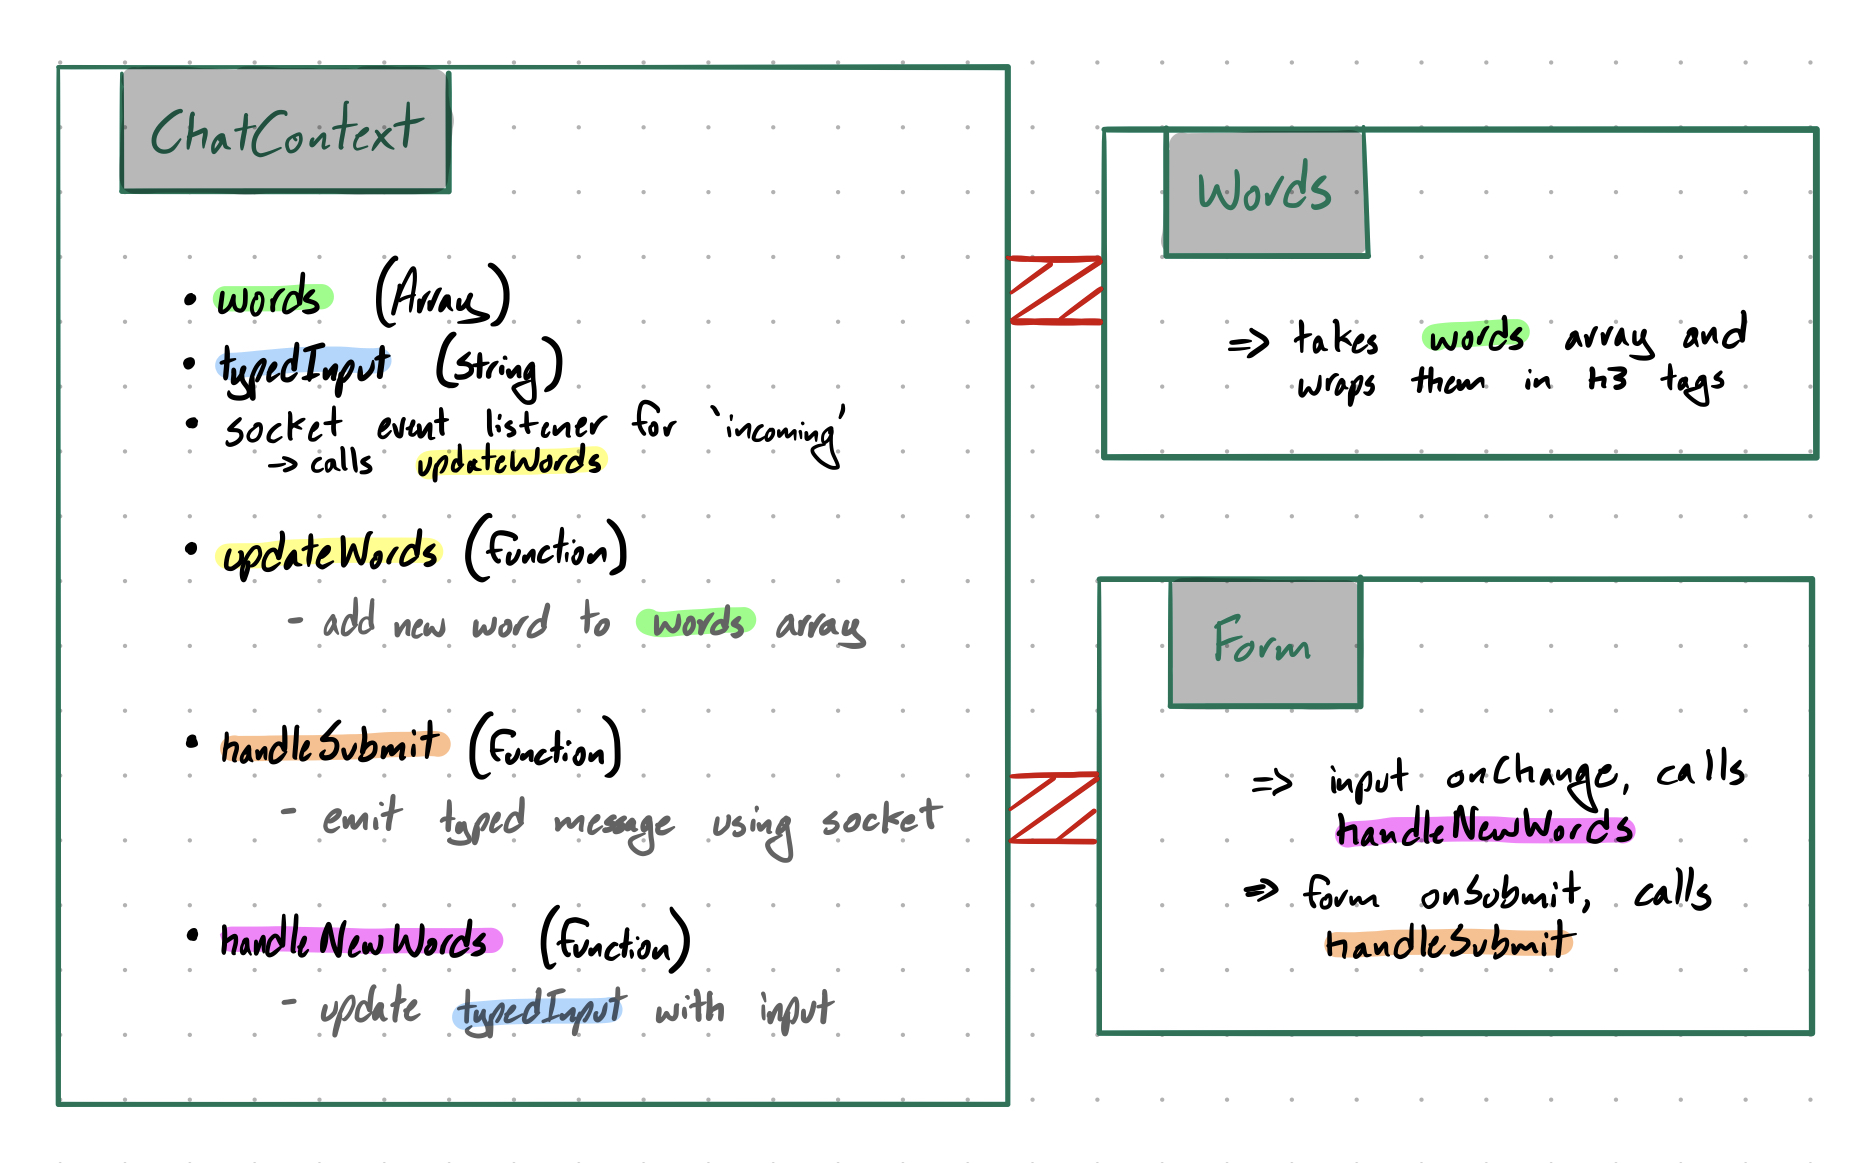 ChatContext
• words (Array)
• typedInput (String)
• socket event listener for 'incoming'
→ calls updateWords
• updateWords (function)
- add new word to words array
• handleSubmit (function)
- emit typed message using socket
• handleNewWords (function)
- update typedInput with input
Words
⇒ takes words array and
wraps them in h3 tags
Form
⇒ input onChange, calls
handleNewWords
⇒ form onSubmit, calls
handleSubmit